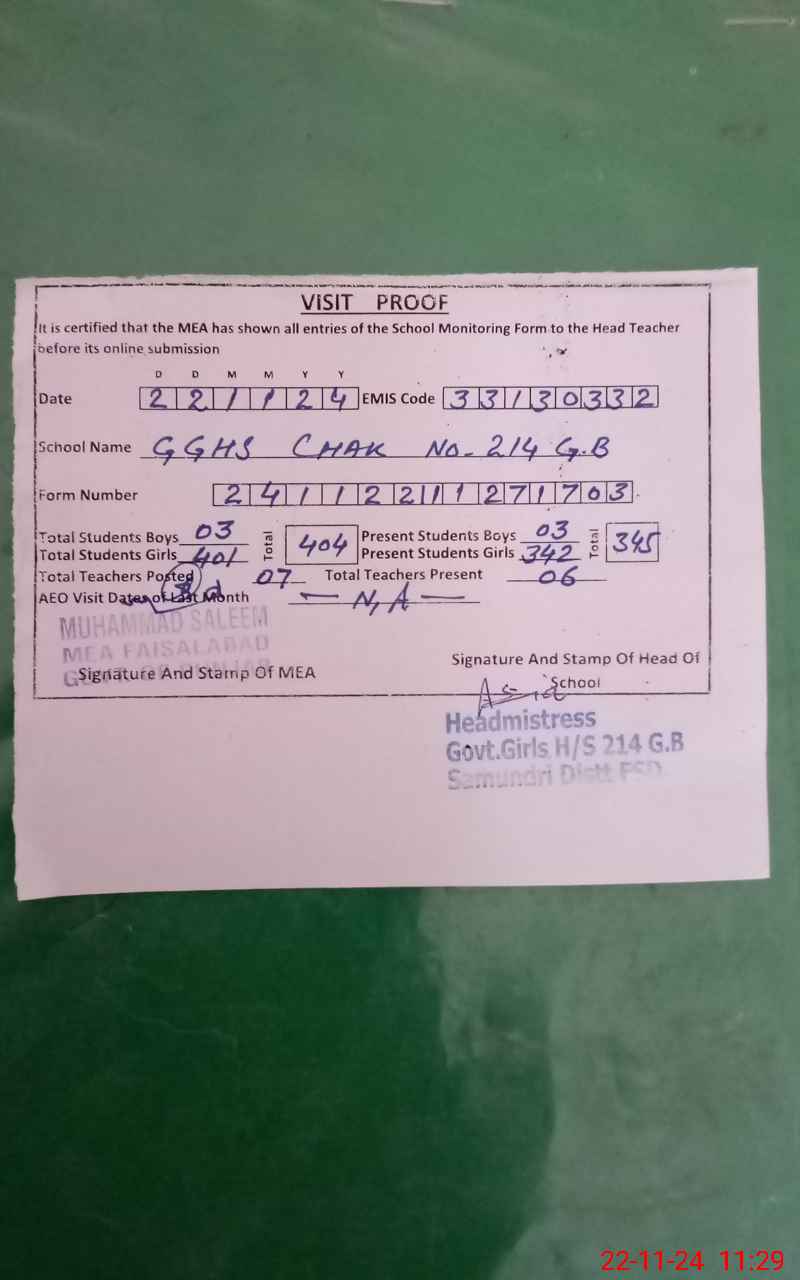 VISIT PROOF
It is certified that the MEA has shown all entries of the School Monitoring Form to the Head Teacher
before its online submission
D D M M Y Y
Date 2 2 1 1 2 4 EMIS Code 3 3 1 3 0 3 3 2
School Name GGHS CHAK No. 214 G.B
Form Number
Total Students Boys 03 Total 404 Present Students Boys 03 Total 345
Total Students Girls 401 Present Students Girls 342
Total Teachers Posted 07 Total Teachers Present 06
AEO Visit Dates of Last Month N,A
MUHAMMAD SALEEM
MEA FAISALABAD
Signature And Stamp Of MEA
Signature And Stamp Of Head Of
School
Headmistress
Govt.Girls H/S 214 G.B
Samundri Distt FSD
22-11-24 11:29